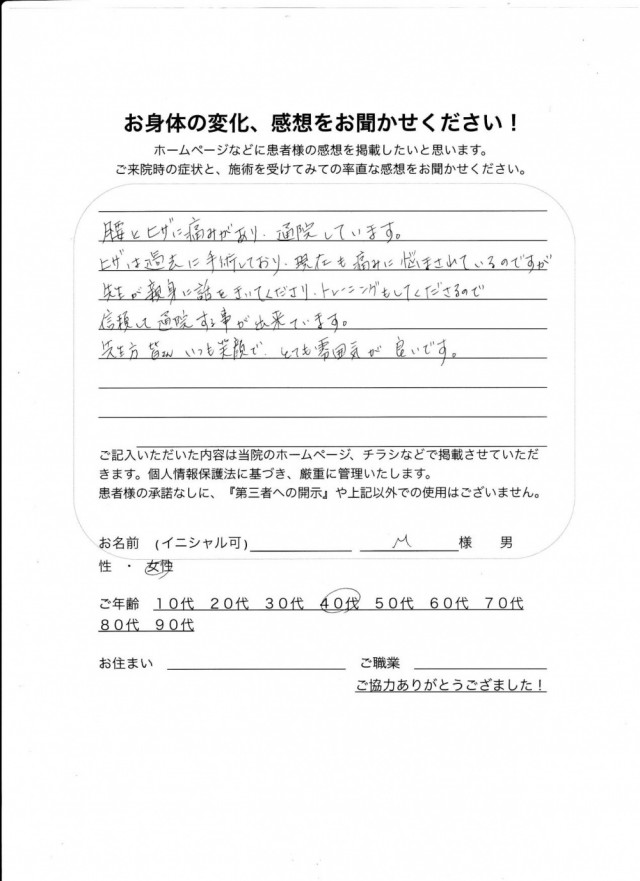 お身体の変化、感想をお聞かせください！
ホームページなどに患者様の感想を掲載したいと思います。
ご来院時の症状と、施術を受けてみての率直な感想をお聞かせください。
腰とヒザに痛みがあり、通院しています。
ヒザは過去に手術しており、現在も痛みに悩まされているのですが
先生が親身に話をきいてくださり、トレーニングもしてくださるので
信頼して通院する事が出来ています。
先生方 皆さん いつも笑顔で、とても雰囲気が良いです。
ご記入いただいた内容は当院のホームページ、チラシなどで掲載させていただ
きます。個人情報保護法に基づき、厳重に管理いたします。
患者様の承諾なしに、『第三者への開示』や上記以外での使用はございません。
お名前 (イニシャル可) M 様 男
性 ・ 女性
ご年齢 10代 20代 30代 40代 50代 60代 70代
80代 90代
お住まい ご職業
ご協力ありがとうござました！